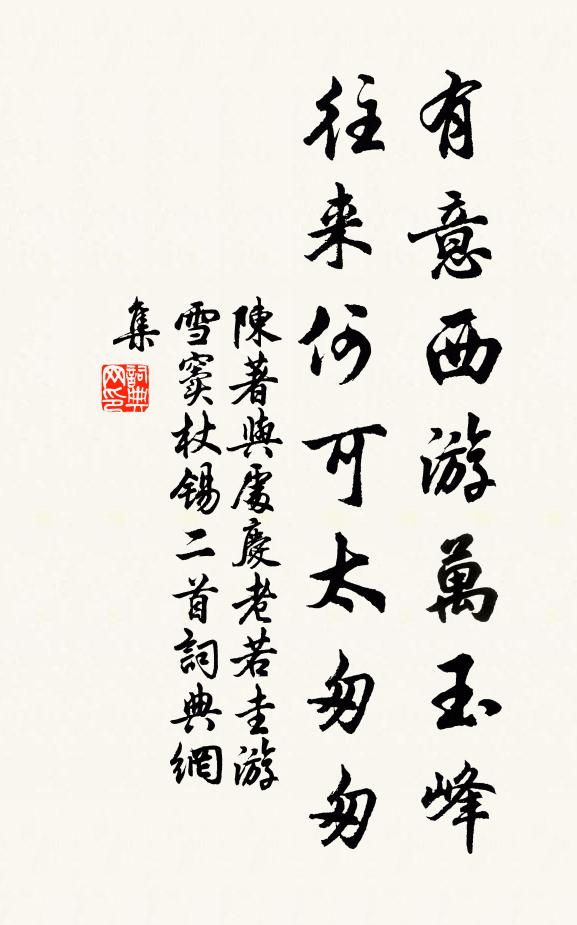 有意西游萬玉峰
往来何可太匆匆
陳著與處慶老若圭游
雪竇杖錫二首詞典網
集
詞典
网印